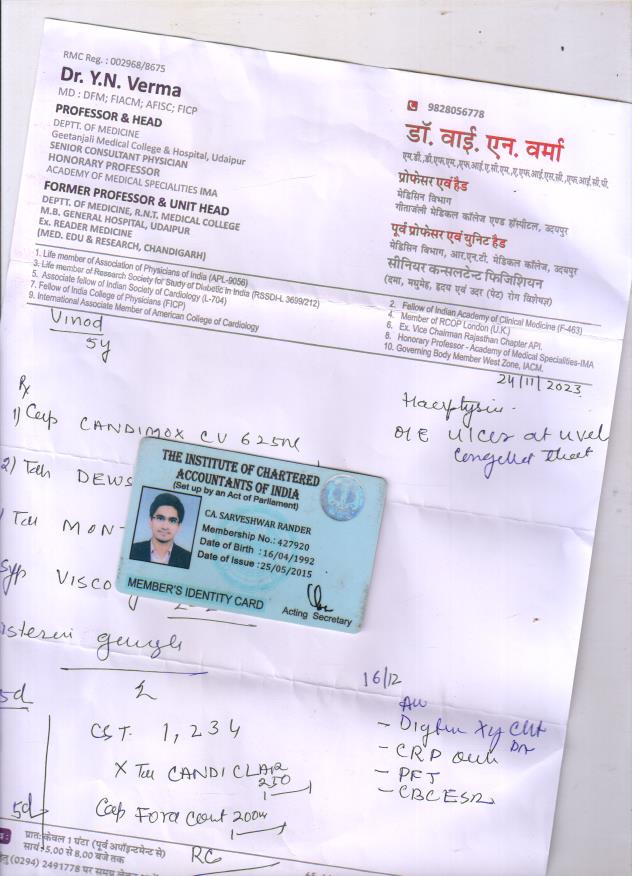 RMC Reg. : 002968/8675
Dr. Y.N. Verma
MD : DFM; FIACM; AFISC; FICP
PROFESSOR & HEAD
DEPTT. OF MEDICINE
Geetanjali Medical College & Hospital, Udaipur
SENIOR CONSULTANT PHYSICIAN
HONORARY PROFESSOR
ACADEMY OF MEDICAL SPECIALITIES IMA
FORMER PROFESSOR & UNIT HEAD
DEPTT. OF MEDICINE, R.N.T. MEDICAL COLLEGE
M.B. GENERAL HOSPITAL, UDAIPUR
Ex. READER MEDICINE
(MED. EDU & RESEARCH, CHANDIGARH)
9828056778
डॉ. वाई. एन. वर्मा
एम.डी.,डी.एफ.एम.,एफ.आई.ए.सी.एम.,ए.एफ.आई.एस.सी.,एफ.आई.सी.पी.
प्रोफेसर एवं हैड
मेडिसिन विभाग
गीतांजली मेडिकल कॉलेज एण्ड हॉस्पीटल, उदयपुर
पूर्व प्रोफेसर एवं युनिट हैड
मेडिसिन विभाग, आर.एन.टी. मेडिकल कॉलेज, उदयपुर
सीनियर कन्सलटेन्ट फिजिशियन
(दमा, मधुमेह, हृदय एवं उदर (पेट) रोग विशेषज्ञ)
1. Life member of Association of Physicians of India (APL-9056)
3. Life member of Research Society for Study of Diabetic in India (RSSDI-L 3699/212)
5. Associate fellow of Indian Society of Cardiology (L-704)
7. Fellow of India College of Physicians (FICP)
9. International Associate Member of American College of Cardiology
2. Fellow of Indian Academy of Clinical Medicine (F-463)
4. Member of RCOP London (U.K.)
6. Ex. Vice Chairman Rajasthan Chapter API.
8. Honorary Professor - Academy of Medical Specialities-IMA
10. Governing Body Member West Zone, IACM.
Vinod
5y
24/11/2023
O/E Ulcer at uvel
Rx
1) Cap CANDIMOX CV 625
2) Tab DEWS
Tab MON-
Syp VISCO
gargle
THE INSTITUTE OF CHARTERED
ACCOUNTANTS OF INDIA
(Set up by an Act of Parliament)
CA. SARVESHWAR RANDER
Membership No.: 427920
Date of Birth : 16/04/1992
Date of Issue : 25/05/2015
MEMBER'S IDENTITY CARD
Acting Secretary
5d
CST. 1, 2 3 4
X Tab CANDICLAR
250
5d
Cap Fora Cout 200
RC
16/12
- CRP
- PFT
- CBC ESR
प्रातः केवल 1 घंटा (पूर्व अपॉइन्टमेन्ट से)
सायं 5.00 से 8.00 बजे तक
(0294) 2491778 पर